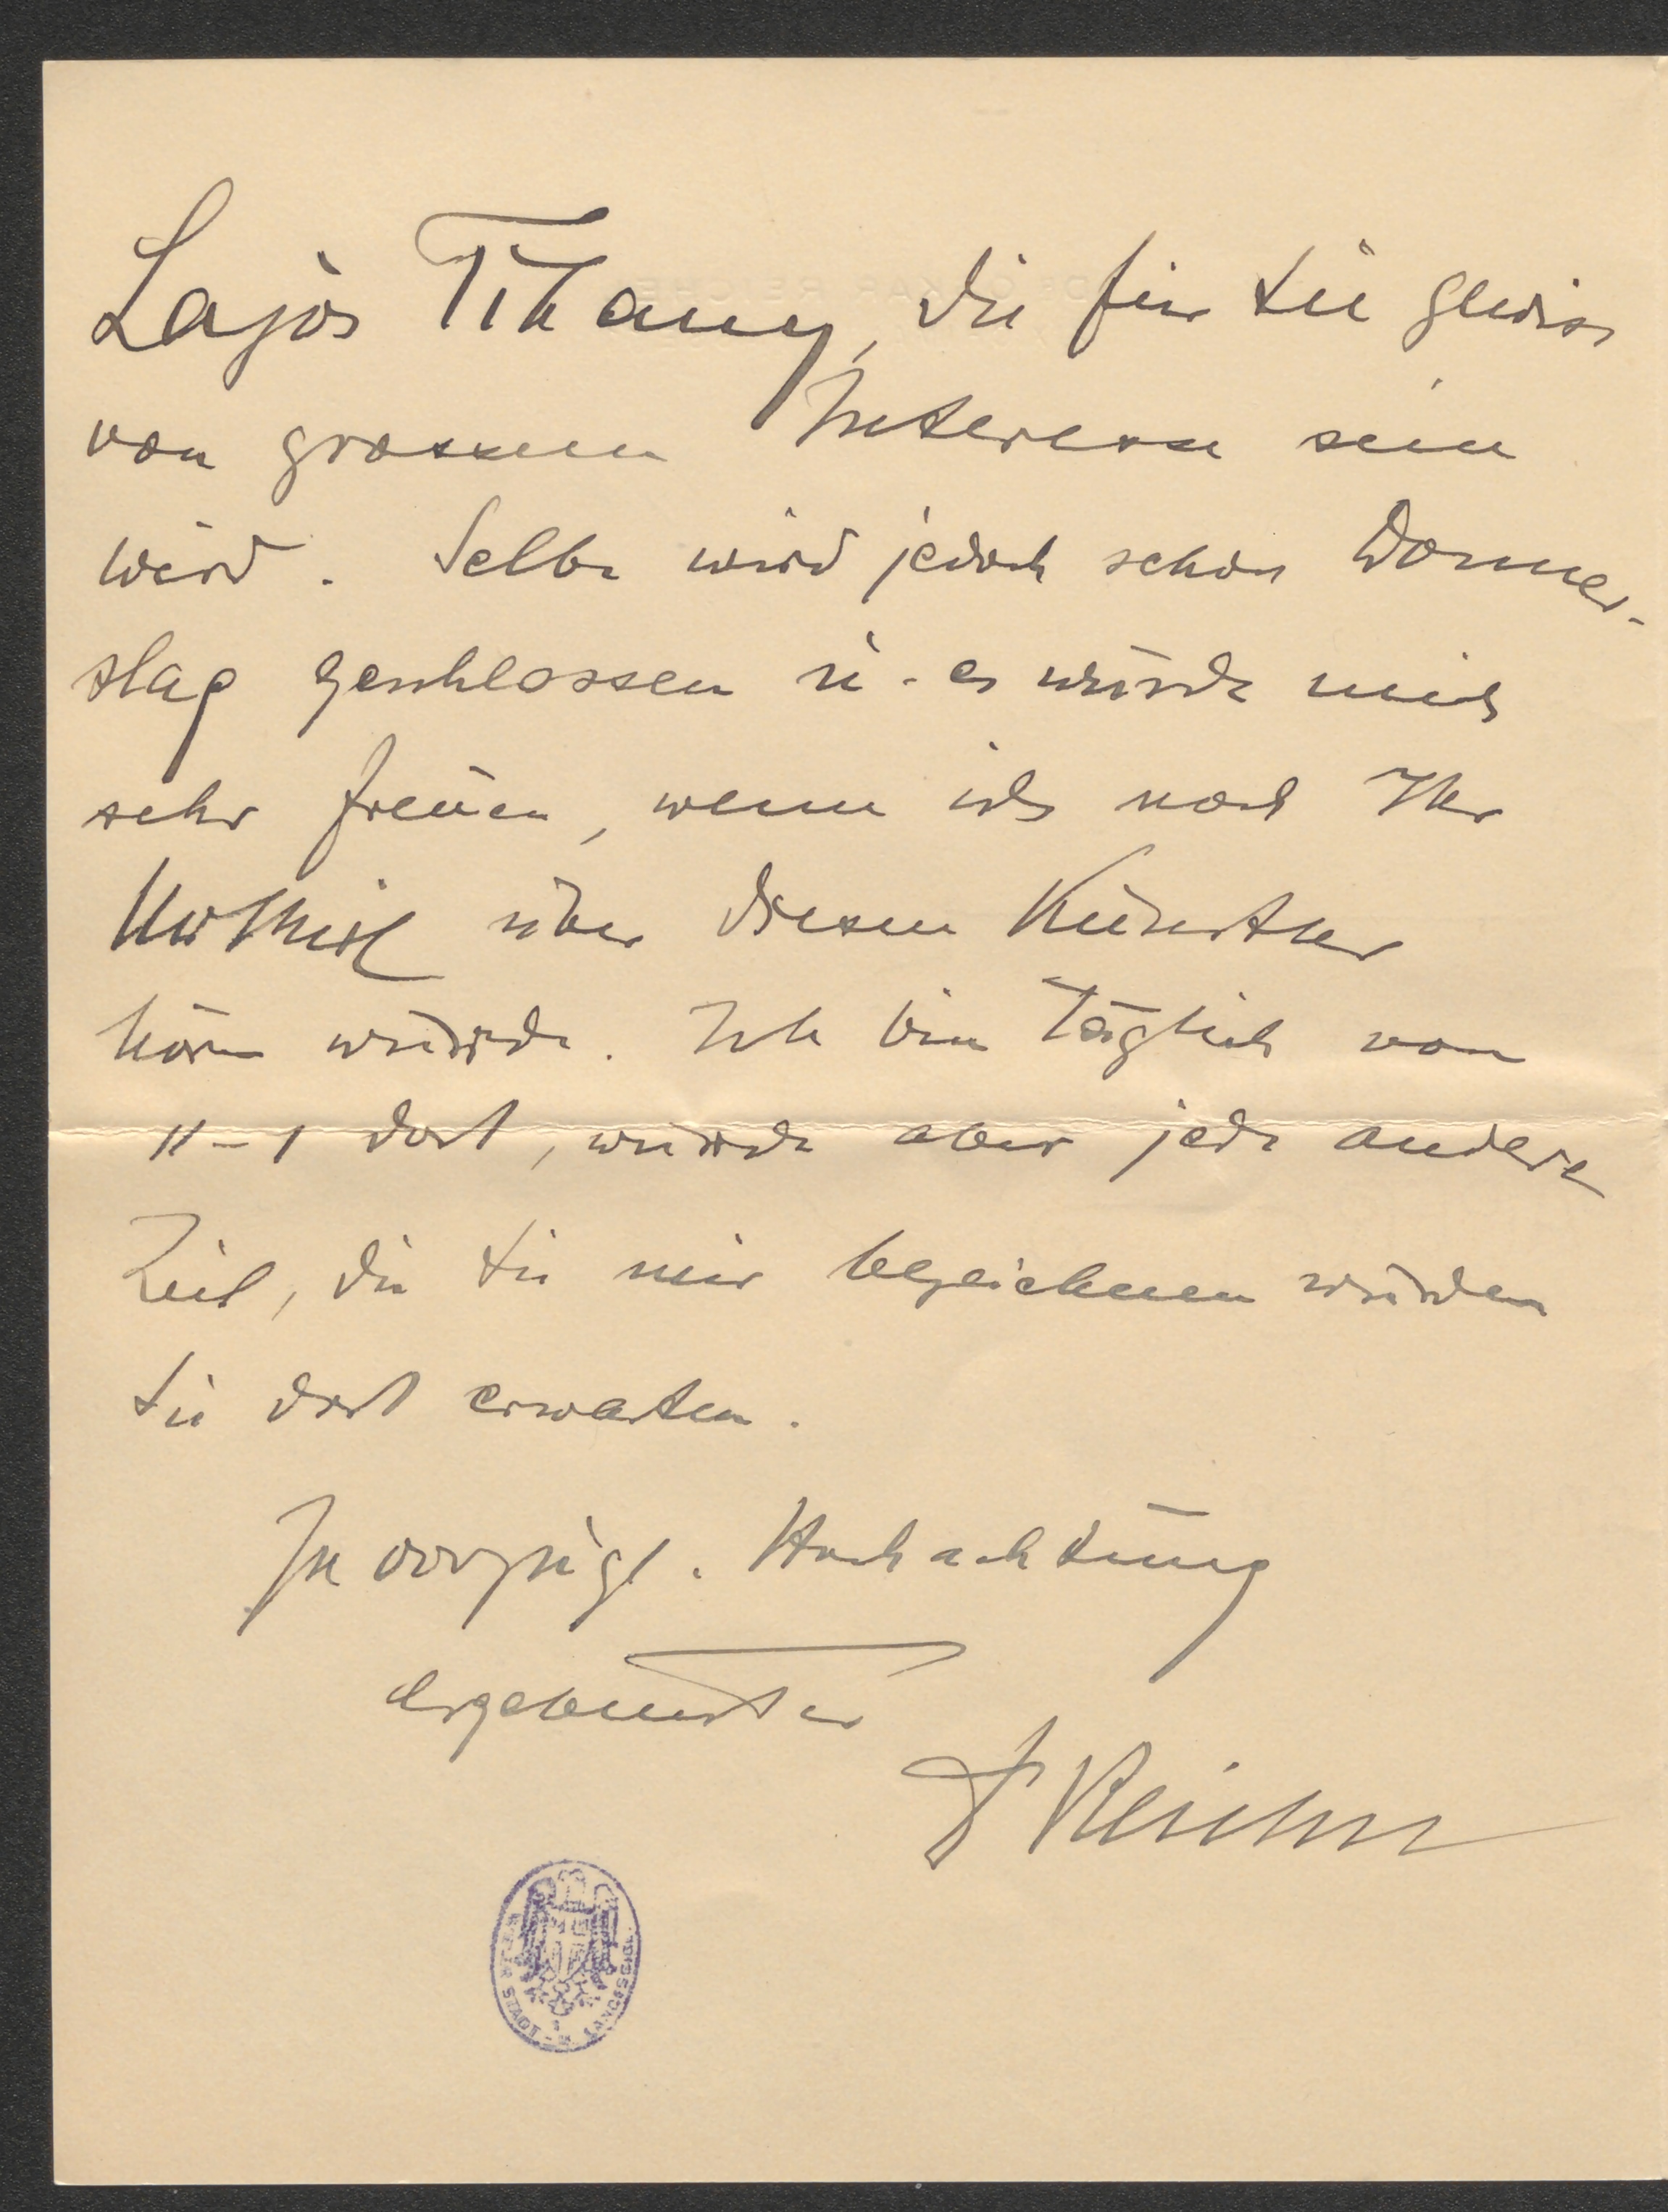 Lajós Tihany, die für Sie gewiss
von grossem Interesse sein
wird. Selbe wird jedoch schon Donner-
stag geschlossen u. es würde mich
sehr freuen, wenn ich noch Ihr
Urtheil über diesen Künstler
hören würde. Ich bin täglich von
11-1 dort, würde aber jede andere
Zeit, die Sie mir bezeichnen würden
Sie dort erwarten.
In vorzügl. Hochachtung
ergebenster
Dr Reichel
STADT- u. LANDESBIBL.